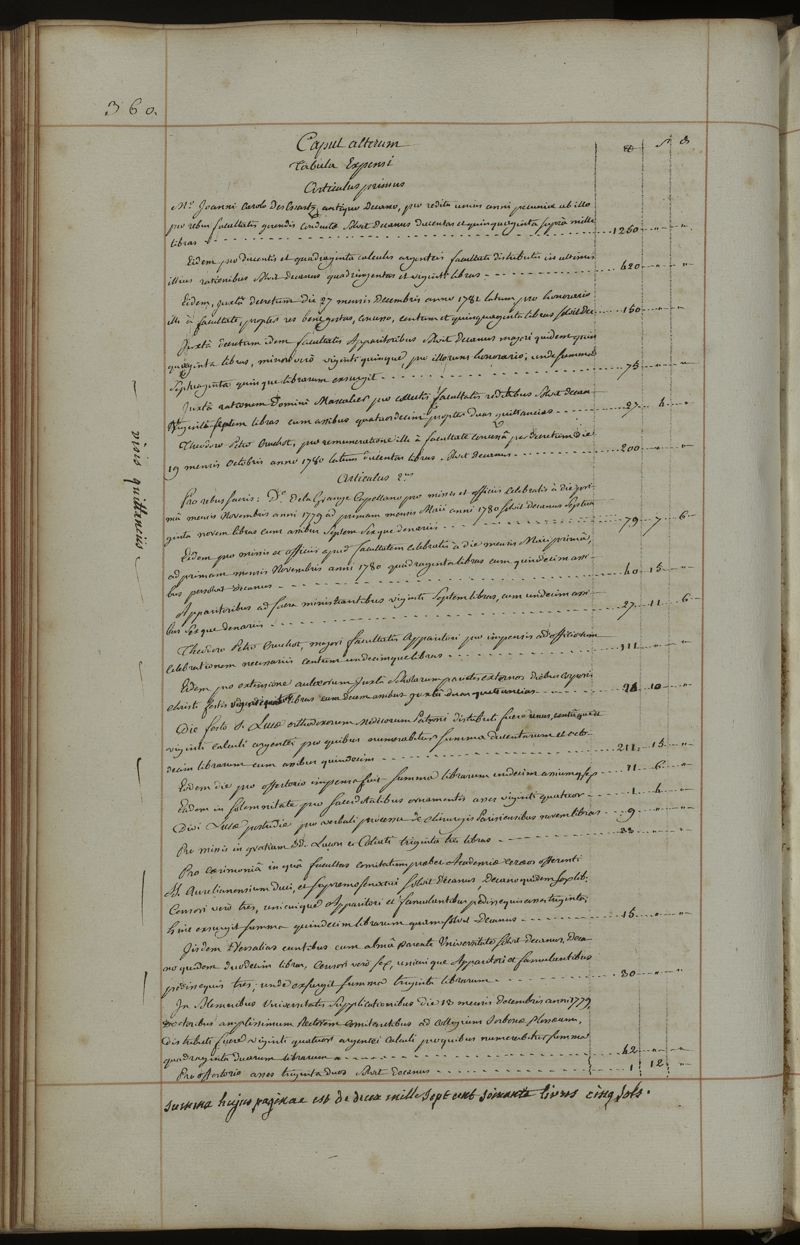 360.
Caput alterum
Tabula Expensi
Articulus primus
₶ s d
Mro Joanni Carolo DesEssartz, antiquo Decano, pro reditu unius anni pecuniæ ab illo
pro rebus facultatis gerendis conductæ solvit decanus ducentas et quinquaginta supra mille
libras - - - 1250 - " - "
Eidem pro ducentis et quadraginta calculis argenteis facultati distributis in ultimis
illius rationibus solvit decanus quadringentas et viginti libras - - - 420 - " - "
Eidem, juxta decretum die 27 mensis decembris anno 1781 latum pro honorario
illi à facultate, propter res bene gestas, concesso, centum et quinquaginta libras solvit Dec. 150 - " - "
Juxtà decretum idem facultatis Apparitoribus solvit decanus majori quidem quin
quaginta libras, minori verò viginti quinque, pro illorum honorario, unde summa
septuaginta quinque librarum exsurgit - - - 75 - " - "
Juxtà rationem Domini Mascalier pro collectis facultatis reditibus solvit decan
viginti septem libras cum assibus quatuor propter duas quittancias - - - 27 - 4 - "
Theodoro Petro Cruchot, pro remuneratione illi à facultate concessâ per decretum die
19 mensis octobris anno 1780 latum ducentas libras solvit decanus - - - 200 - " - "
Articulus 2us
Pro rebus sacris: Do De la Grange Capellano pro missis et officiis celebratis à die pri-
mâ mensis Novembris anni 1779 ad primam mensis Maii anni 1780 solvit decanus septua
ginta novem libras cum assibus septem sexque denariis - - - 79 - 7 - 6
Eidem pro missis et officiis apud facultatem celebratis à die mensis Maii primâ,
ad primam mensis Novembris anni 1780 quadraginta libras cum quindecim assi
bus persolvit decanus - - - 40 - 15 - "
Apparitoribus ad sacra ministrantibus viginti septem libras, cum undecim assi
bus sexque denariis - - - 27 - 11 - 6
Theodoro Petro Cruchot, majori facultatis Apparitori pro impensis ad officiorum
celebrationem necessariis centum undecimque libras - - - 111 - " - "
Eidem pro extensione aulæorum juxtà scholarum parietes externos diebus corporis
christi festis libras cum decem assibus juxtà duas quittancias - - - 10 - "
Die festo S. Lucæ orthodoxorum Medicorum Patroni distributi fuere unus, centumque et
viginti calculi argentei pro quibus numerabitur summa ducentarum et octo-
decim librarum cum assibus quindecim - - - 211 - 15 - "
Eâdem die pro offertorio impensa fuit summa librarum undecim assiumq. sex - 11 - 6 - "
Eâdem in solemnitate pro sacerdotalibus ornamentis asses viginti quatuor - - 1 - 4 - "
Divi Lucæ postridie pro verbali processu de chirurgis Parisiensibus novem libras - - 9 - " - "
Pro missis in gratiam DD. Luçon et Coleüti triginta tres libras - - - 33 - " - "
Pro cærimoniâ in quâ facultas comitatum præbet Academiæ cereos offerenti
D. Aurelianensium Duci, et supremo senatui solvit decanus, Decano quidem sex lib:
Censori verò tres, unicuique Apparitori et famulantibus pedissequis asses triginta;
hinc exsurgit summa quindecim librarum quam solvit Decanus - - - 15 - " - "
Iisdem Versalias euntibus cum almâ parente Universitate solvit decanus, Deca
no quidem duodecim libras, Censori verò sex, unicuique Apparitori et famulantibus
pedissequis tres; unde exsurgit summa triginta librarum - - - 30 - " - "
In solemnibus Universitatis supplicationibus die 13 mensis decembris anni 1779
Doctoribus amplissimum Rectorem comitantibus ad collegium Sorbonæ Plessæum,
distributi fuere viginti quatuor argentei calculi pro quibus numerabitur summa
quadraginta duarum librarum - - - 42 - " - "
Pro offertorio asses triginta duos solvit decanus - - - 1 - 12 - "
summa hujus paginae est de deux mille sept cent soixante livres cinq sols.
visis quittanciis